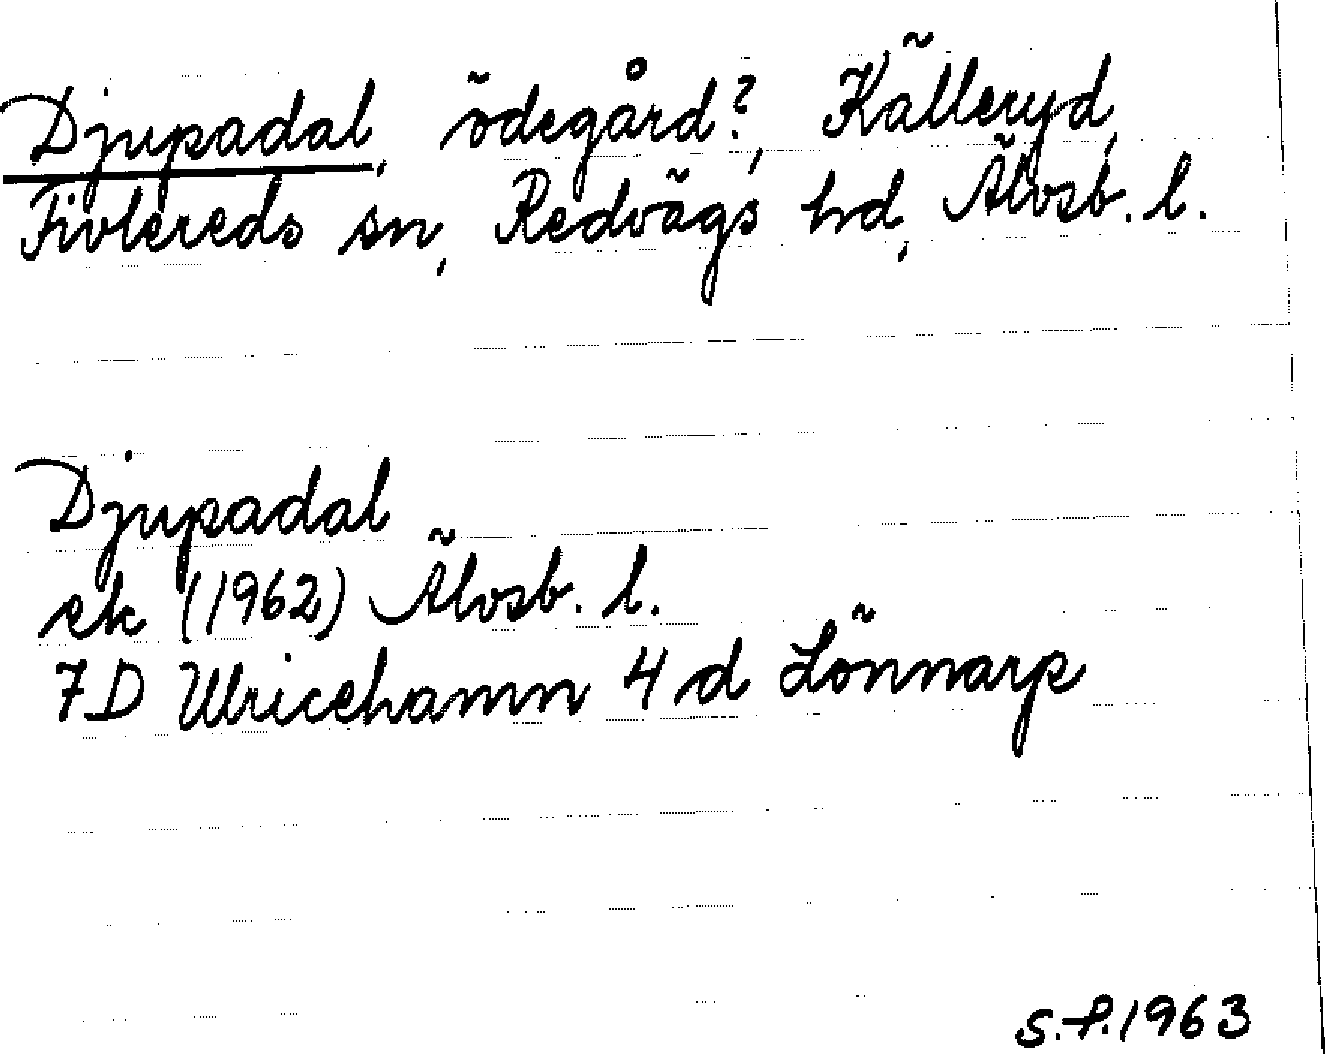 Djupadal, ödegård?, Källeryd,
Fivlereds sn, Redvägs hd, Älvsb. l.
Djupadal
ek (1962) Älvsb. l.
7D Ulricehamn 4 d Lönnarp
S.P.1963